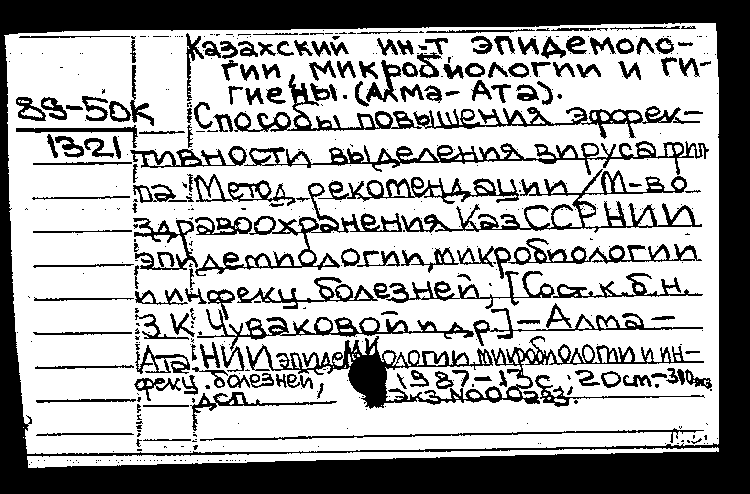 Казахский ин-т эпидемоло-
гии, микробиологии и ги-
гиены. (Алма-Ата).
89-50К
1321
Способы повышения эффек-
тивности выделения вируса грип-
па: Метод. рекомендации / М-во
здравоохранения КазССР, НИИ
эпидемиологии, микробиологии
и инфекц. болезней; [Сост. к.б.н.
З.К. Чуваковой и др.] - Алма-
Ата: НИИ эпидемиологии, микробиологии и ин-
фекц. болезней, 1987 - 13с.; 20см. - 310 экз
ДСП. Экз. N000283.